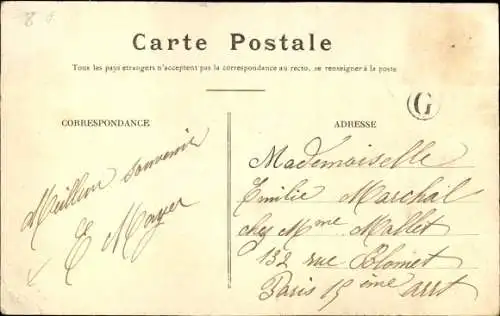 Carte Postale
Tous les pays étrangers n'acceptent pas la correspondance au recto, se renseigner à la poste
G
CORRESPONDANCE
ADRESSE
Meilleur souvenir
E Mayer
Mademoiselle
Emilie Marchal
chez Mme Mallet
132 rue Blomet
Paris 15ème arrt